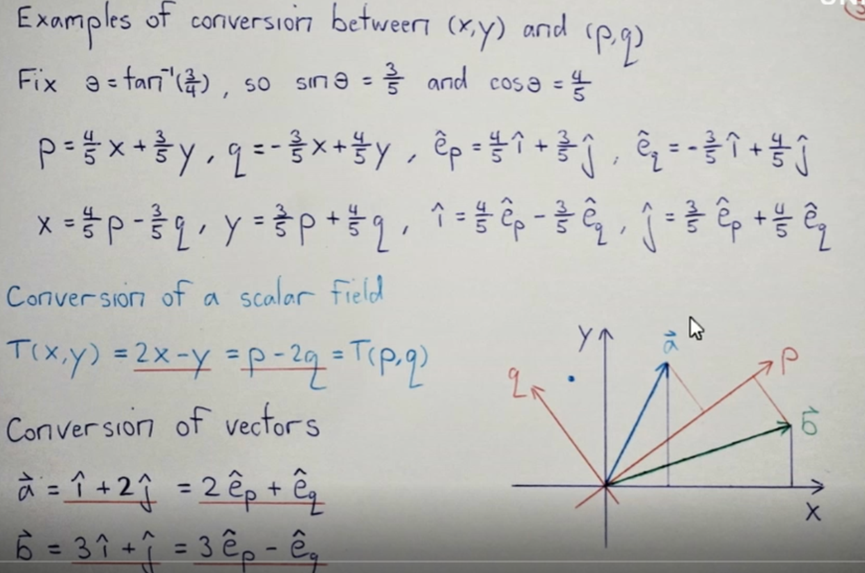 Examples of conversion between (x,y) and (p,q)
Fix θ = tan⁻¹(3/4), so sinθ = 3/5 and cosθ = 4/5
p = 4/5 x + 3/5 y, q = -3/5 x + 4/5 y, êp = 4/5 î + 3/5 ĵ, êq = -3/5 î + 4/5 ĵ
x = 4/5 p - 3/5 q, y = 3/5 p + 4/5 q, î = 4/5 êp - 3/5 êq, ĵ = 3/5 êp + 4/5 êq
Conversion of a scalar field
T(x,y) = 2x-y = p-2q = T(p,q)
Conversion of vectors
a⃗ = î + 2ĵ = 2êp + êq
b⃗ = 3î + ĵ = 3êp - êq
y
a⃗
p
q
b⃗
x